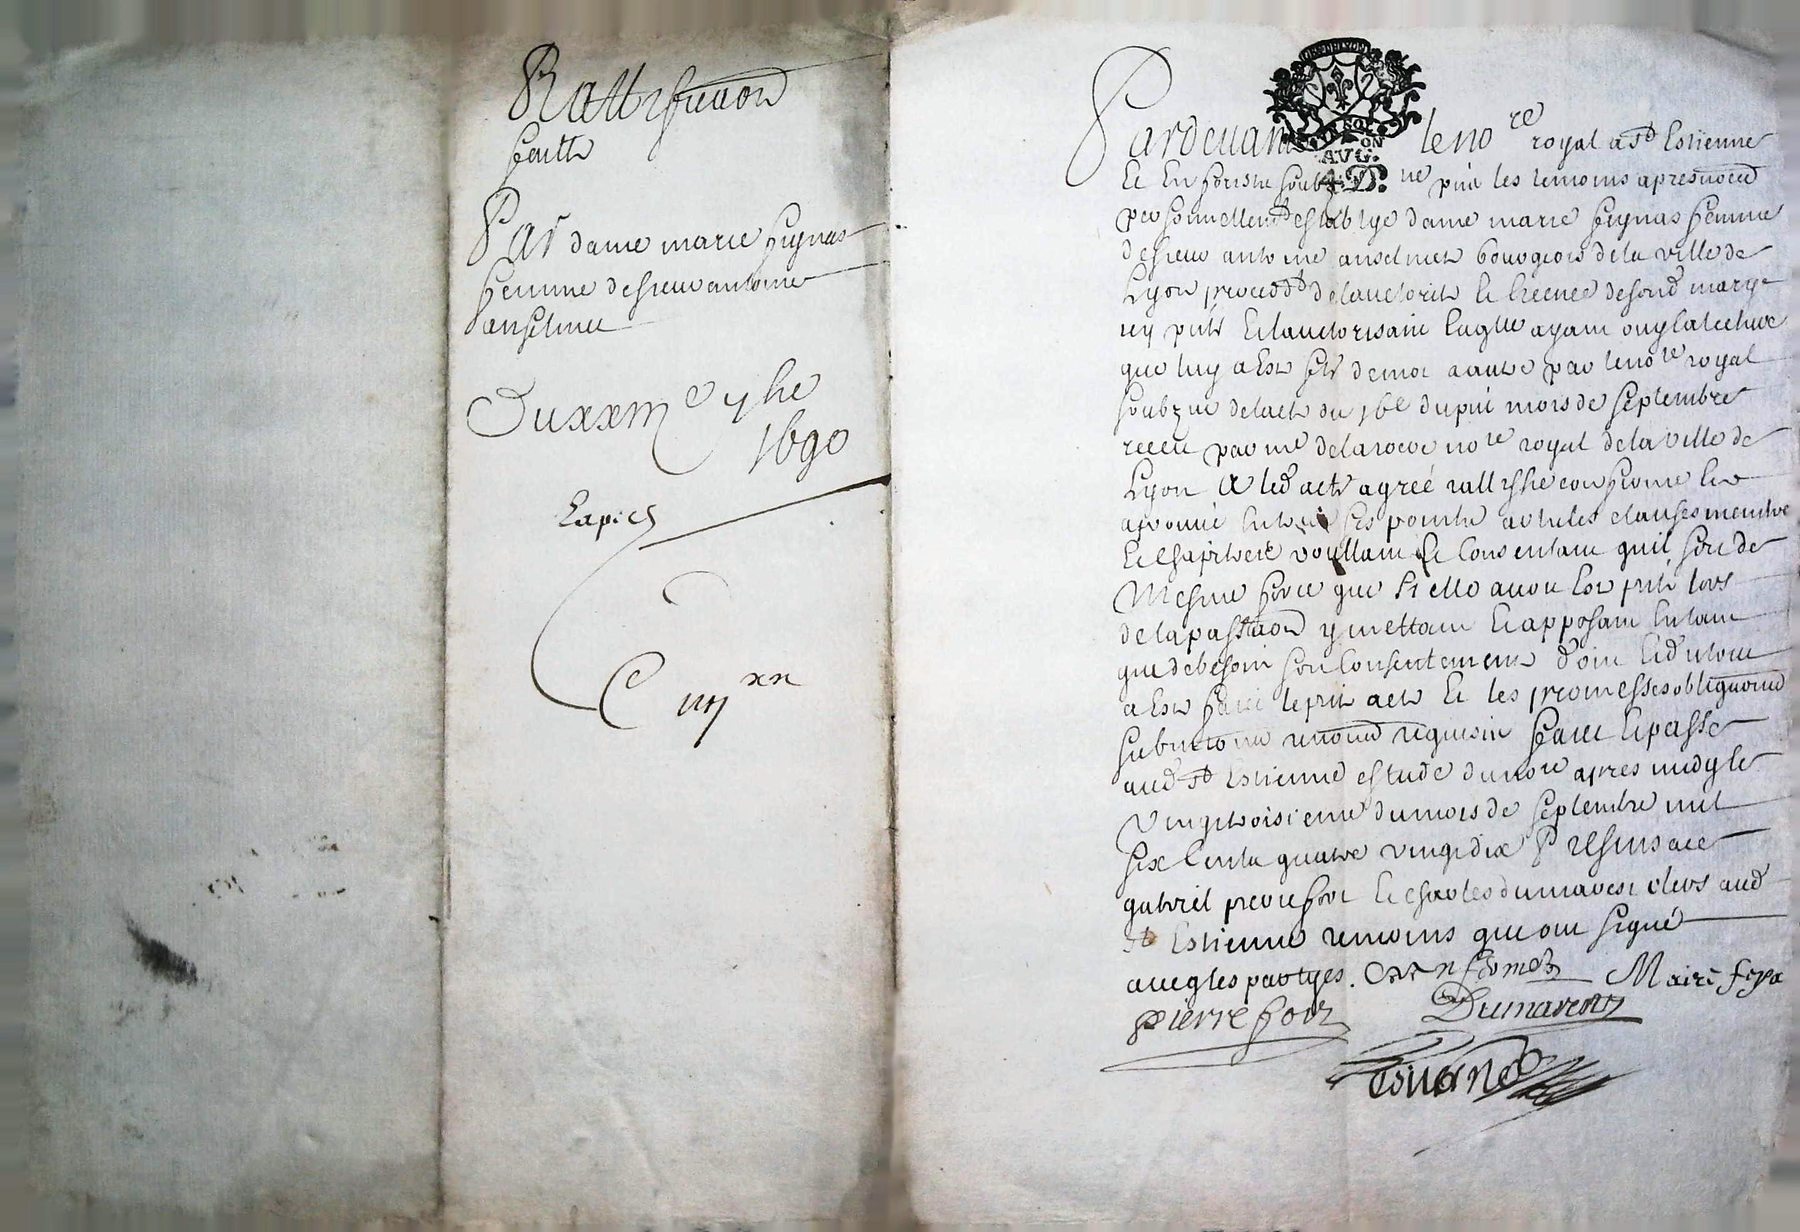 Rattiffication
faicte
Par dame marie feynas
femme de sieur antoine
anselmet
Du xxiii e 7bre
1690
AVG.
4. D.
Pardevant le no re royal a St Estienne
personnellemt establye dame marie feynas femme
de sieur antoine anselmet bourgeois de la ville de
Lyon proced.t de lauctorite et licence de sond. mary
icy pnt et lauctorisant laqlle ayant ouy la lecture
que luy a este fte de mot a autre par le no re royal
soubz.ne de lacte du 16e du pnt mois de septembre
receu par me delaroere no re royal de la ville de
Lyon a led acte agreé rattiffié confirmé et
aprouué poinctz articles clauses
voullant et consentant quil soit de
mesme force que si elle auoit este pnte lors
de la passaon y mettant et apposant entant
que de besoin son consentement dont
a este faict le pnt acte et les promesses obligaons
submions renonons requises faict et passé
aud St Estienne estude du no re apres midy le
vingt troisieme du mois de septembre mil
six cents quatre vingt dix presens a ce
gabriel pierrefort et charles dumarest clers aud
St Estienne temoins que ont signé
auec les partyes. Marie feyna
pierrefort Dumarest